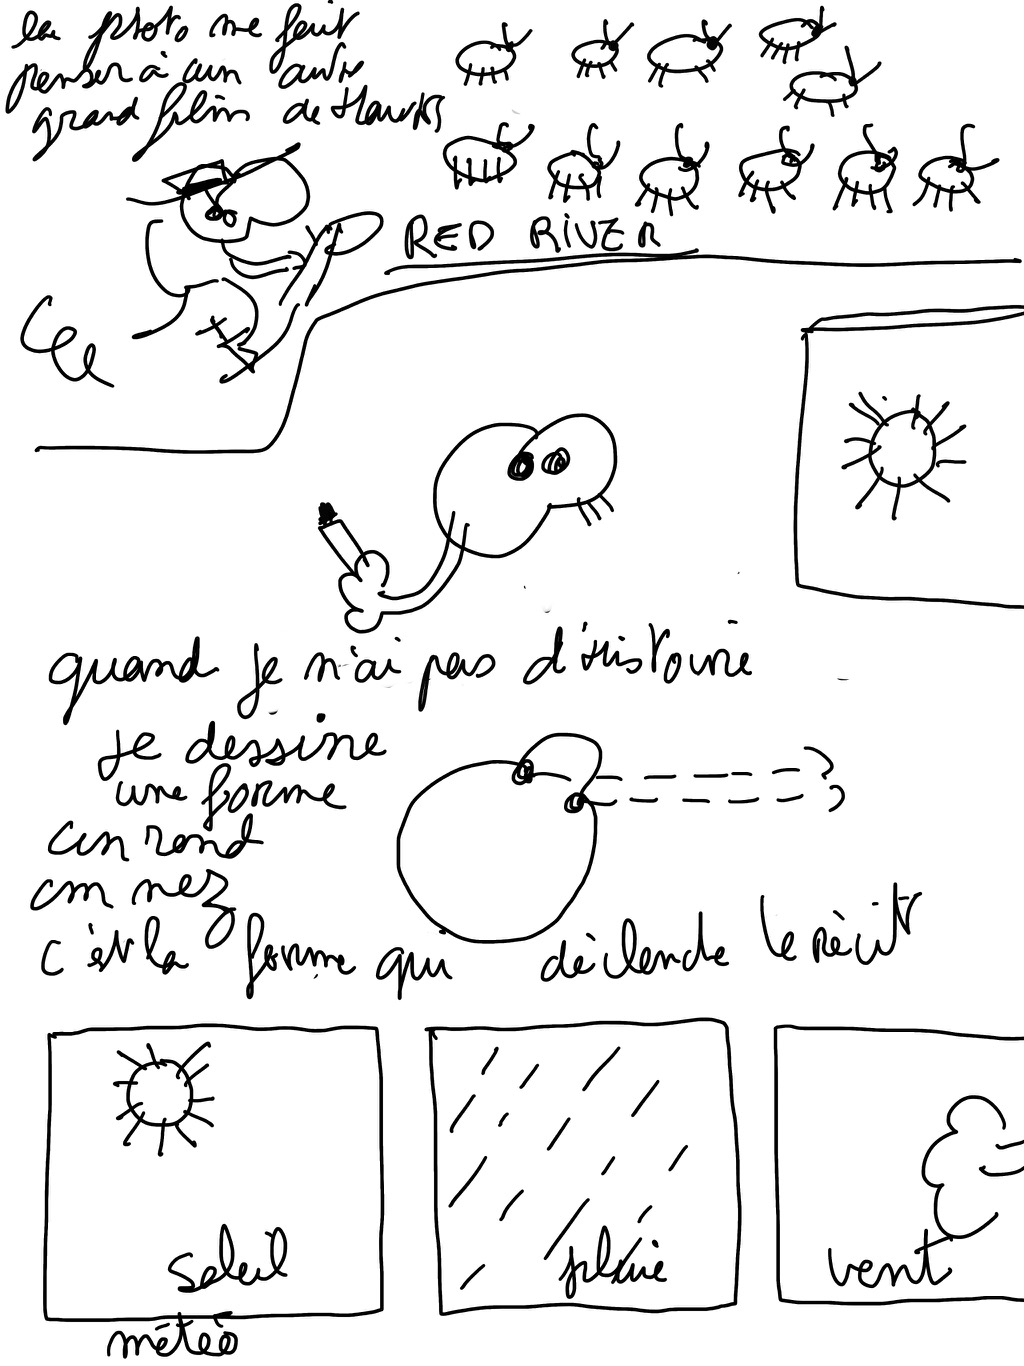 la photo me fait
penser à un autre
grand film de Hawks
RED RIVER
quand je n'ai pas d'histoire
je dessine
une forme
un rond
un nez
c'est la forme qui déclenche le récit
soleil
pluie
vent
météo